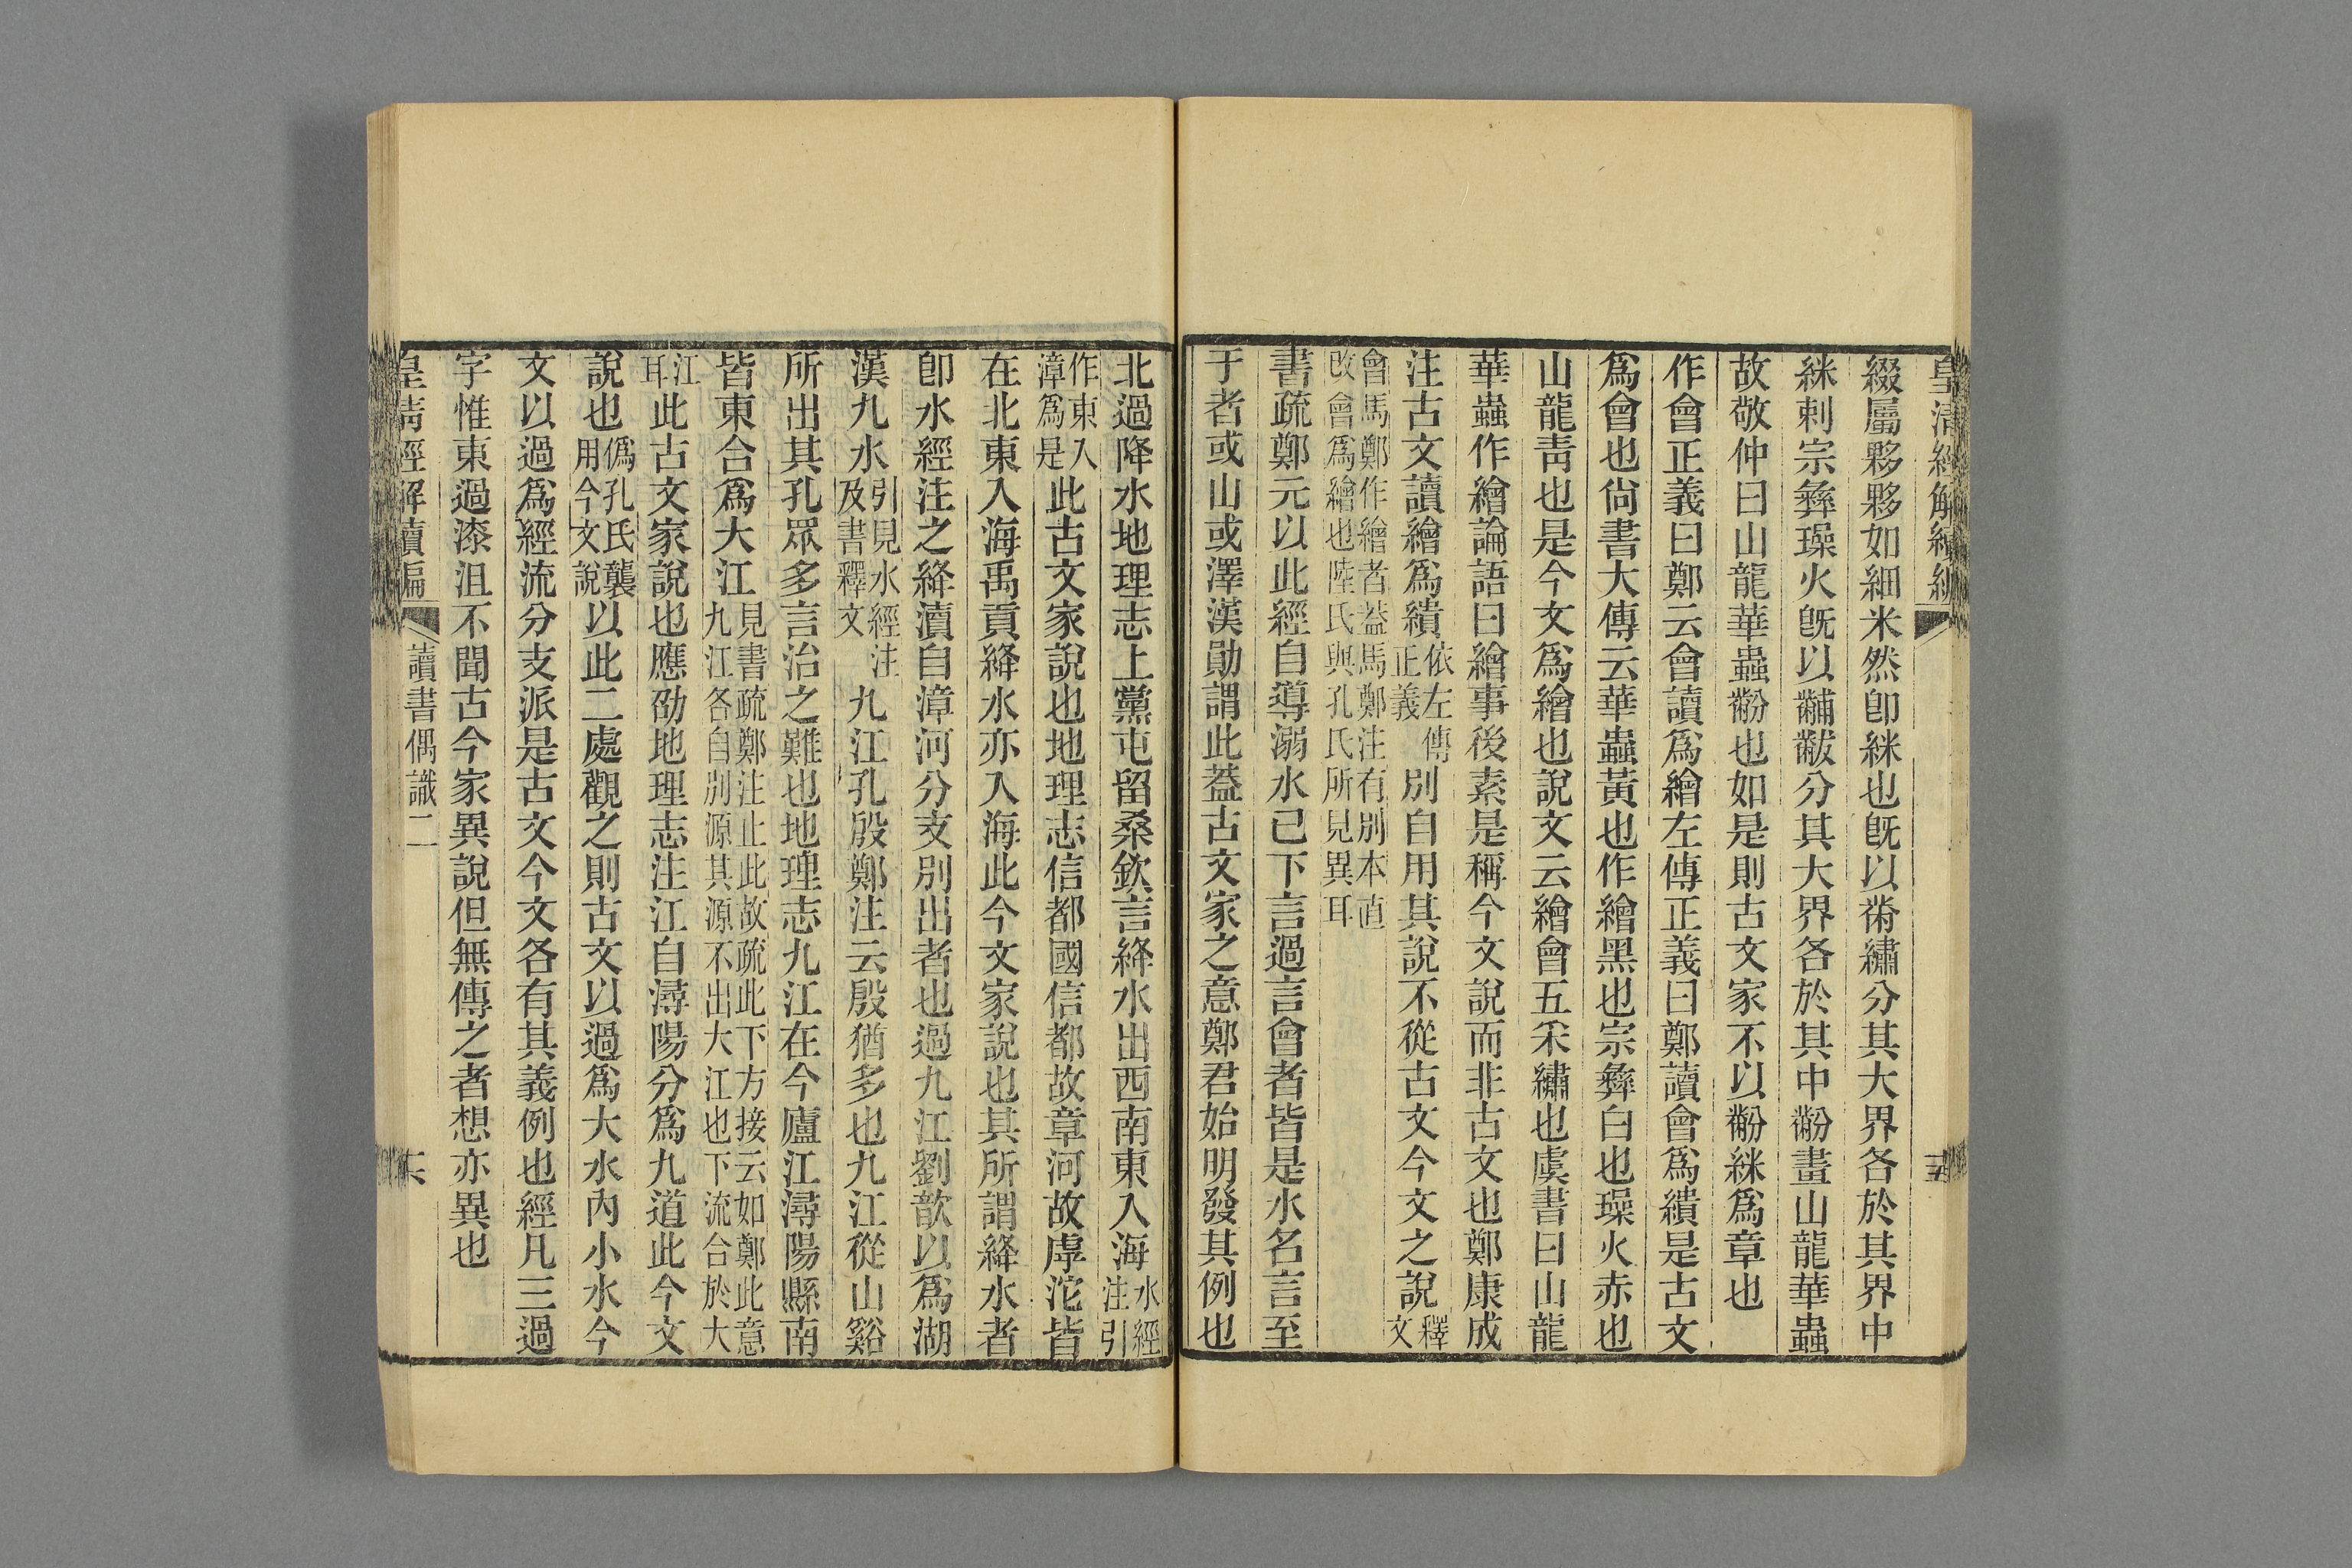 皇清經解續編
綴屬夥夥如細米然卽絲也旣以黹繡分其大界各於其界中
絲剌宗彝璪火旣以黼黻分其大界各於其中黺畫山龍華蟲
故敬仲曰山龍華蟲黺也如是則古文家不以黺絲爲章也
作會正義曰鄭云會讀爲繪左傳正義曰鄭讀會爲繢是古文
爲會也尙書大傳云華蟲黃也作繪黑也宗彝白也璪火赤也
山龍靑也是今文爲繪也說文云繪會五采繡也虞書曰山龍
華蟲作繪論語曰繪事後素是稱今文說而非古文也鄭康成
注古文讀繪爲繢依左傳正義別自用其說不從古文今文之說釋文
會馬鄭作繪者葢馬鄭注有別本直改會爲繪也陸氏與孔氏所見異耳
書疏鄭元以此經自導溺水已下言過言會者皆是水名言至
于者或山或澤漢勛謂此葢古文家之意鄭君始明發其例也
北過降水地理志上黨屯留桑欽言絳水出西南東入海水經注引
作東入漳爲是此古文家說也地理志信都國信都故章河故虖沱皆
在北東入海禹貢絳水亦入海此今文家說也其所謂絳水者
卽水經注之絳瀆自漳河分支別出者也過九江劉歆以爲湖
漢九水引見水經注及書釋文九江孔殷鄭注云殷猶多也九江從山谿
所出其孔眾多言治之難也地理志九江在今廬江潯陽縣南
皆東合爲大江見書疏鄭注止此故疏此下方接云如鄭此意九江各自別源其源不出大江也下流合於大
江耳此古文家說也應劭地理志注江自潯陽分爲九道此今文
說也僞孔氏襲用今文說以此二處觀之則古文以過爲大水內小水今
文以過爲經流分支派是古文今文各有其義例也經凡三過
字惟東過漆沮不聞古今家異說但無傳之者想亦異也
皇清經解續編 讀書偶識二